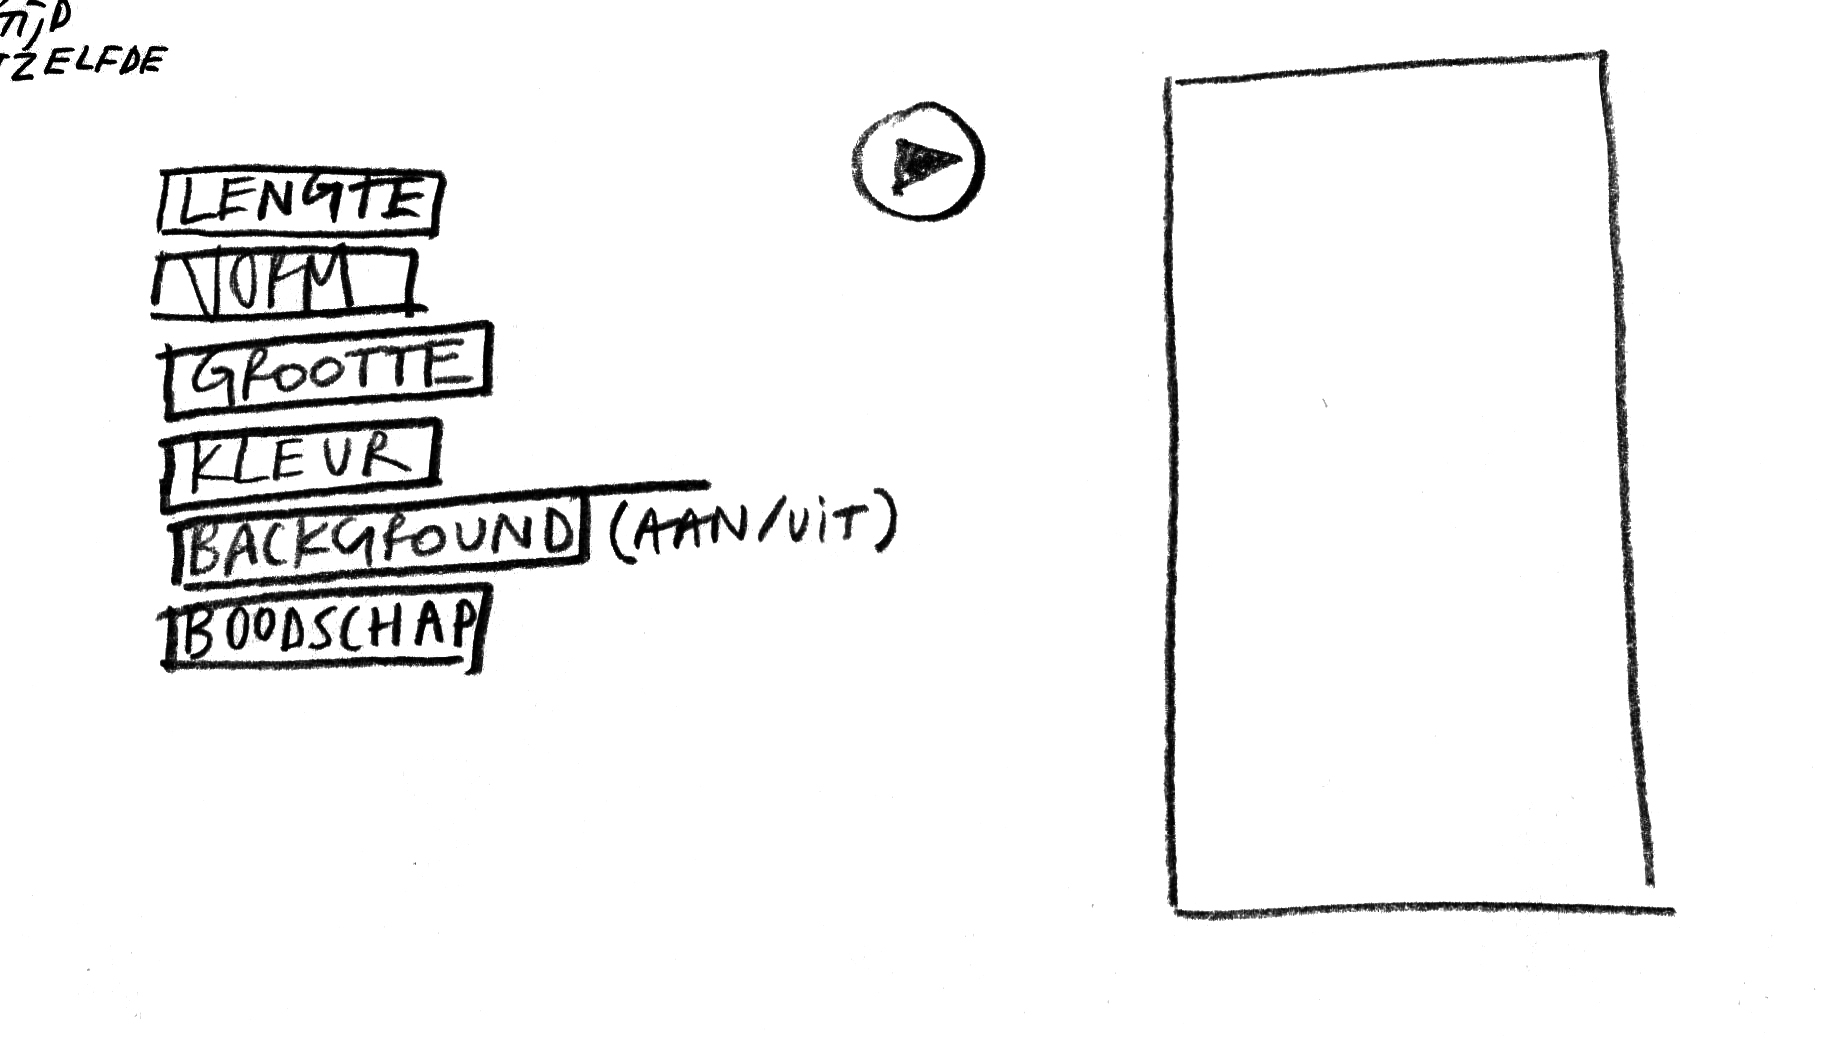 TIJD
TZELFDE
LENGTE
VORM
GROOTTE
KLEUR
BACKGROUND (AAN/UIT)
BOODSCHAP